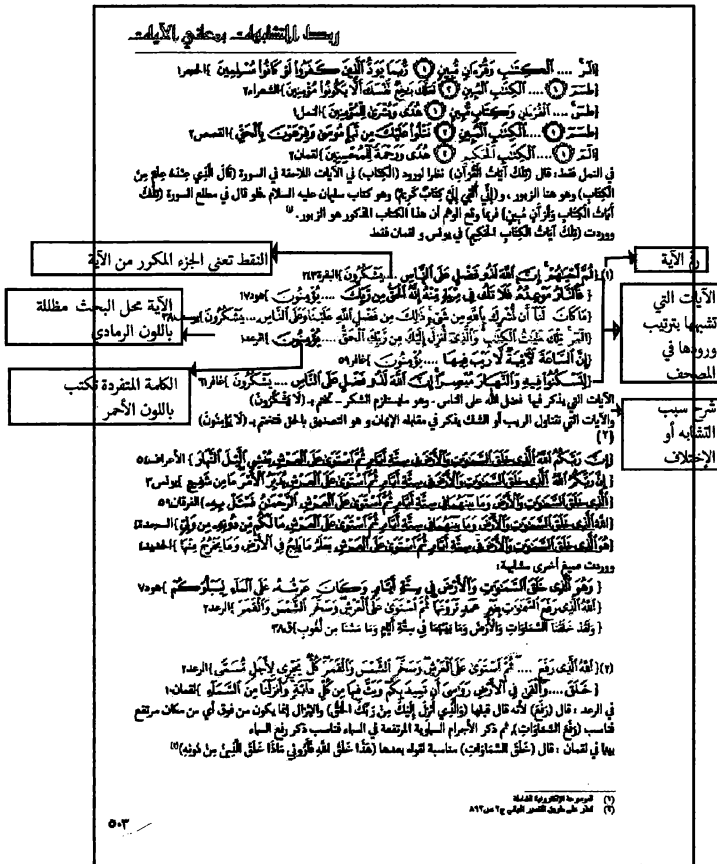 ربط المتشابهات بمعاني الآيات
الٓرۚ .... ٱلۡكِتَٰبِ وَقُرۡءَانٖ مُّبِينٖ ۝١ رُّبَمَا يَوَدُّ ٱلَّذِينَ كَفَرُواْ لَوۡ كَانُواْ مُسۡلِمِينَ }الحجر١
{طسٓمٓ ۝١ .... ٱلۡكِتَٰبِ ٱلۡمُبِينِ ۝٢ لَعَلَّكَ بَٰخِعٞ نَّفۡسَكَ أَلَّا يَكُونُواْ مُؤۡمِنِينَ }الشعراء٢
{طسٓۚ .... ٱلۡقُرۡءَانِ وَكِتَابٖ مُّبِينٍ ۝١ هُدٗى وَبُشۡرَىٰ لِلۡمُؤۡمِنِينَ }النمل١
{طسٓمٓ ۝١ .... ٱلۡكِتَٰبِ ٱلۡمُبِينِ ۝٢ نَتۡلُواْ عَلَيۡكَ مِن نَّبَإِ مُوسَىٰ وَفِرۡعَوۡنَ بِٱلۡحَقِّ }القصص٢
{الٓمٓ ۝١ .... ٱلۡكِتَٰبِ ٱلۡحَكِيمِ ۝٢ هُدٗى وَرَحۡمَةٗ لِّلۡمُحۡسِنِينَ }لقمان٢
في النمل فقط: قال (تِلْكَ آيَاتُ الْقُرْآنِ) نظرا لورود (الْكِتَابِ) في الآيات اللاحقة في السورة (قَالَ الَّذِي عِندَهُ عِلْمٌ مِّنَ
الْكِتَابِ) وهو هنا الزبور، و(إِنِّي أُلْقِيَ إِلَيَّ كِتَابٌ كَرِيمٌ) وهو كتاب سليمان عليه السلام، فلو قال في مطلع السورة (تِلْكَ
آيَاتُ الْكِتَابِ وَقُرْآنٍ مُّبِينٍ) لربما وقع الوهم أن هذا الكتاب المذكور هو الزبور.
ووردت (تِلْكَ آيَاتُ الْكِتَابِ الْحَكِيمِ) في يونس و لقمان فقط
النقط تعنى الجزء المكرر من الآية
رقم الآية
الآية محل البحث مظللة
باللون الرمادي
الكلمة المتفردة تكتب
باللون الأحمر
الآيات التي
تشبهها بترتيب
ورودها في
المصحف
شرح سبب
التشابه أو
الإختلاف
(١) ثُمَّ أَحۡيَٰهُمۡۚ إِنَّ ٱللَّهَ لَذُو فَضۡلٍ عَلَى ٱلنَّاسِ .... يَشۡكُرُونَ }البقرة٢٤٣
{ فَٱلنَّارُ مَوۡعِدُهُۥۚ فَلَا تَكُ فِي مِرۡيَةٖ مِّنۡهُۚ إِنَّهُ ٱلۡحَقُّ مِن رَّبِّكَ .... يُؤۡمِنُونَ }هود١٧
{ مَا كَانَ لَنَآ أَن نُّشۡرِكَ بِٱللَّهِ مِن شَيۡءٖۚ ذَٰلِكَ مِن فَضۡلِ ٱللَّهِ عَلَيۡنَا وَعَلَى ٱلنَّاسِ .... يَشۡكُرُونَ }يوسف٣٨
{الٓمٓرۚ تِلۡكَ ءَايَٰتُ ٱلۡكِتَٰبِۗ وَٱلَّذِيٓ أُنزِلَ إِلَيۡكَ مِن رَّبِّكَ ٱلۡحَقُّ .... يُؤۡمِنُونَ }الرعد١
{إِنَّ ٱلسَّاعَةَ لَأٓتِيَةٞ لَّا رَيۡبَ فِيهَا .... يُؤۡمِنُونَ }غافر٥٩
{لِتَسۡكُنُواْ فِيهِ وَٱلنَّهَارَ مُبۡصِرًاۚ إِنَّ ٱللَّهَ لَذُو فَضۡلٍ عَلَى ٱلنَّاسِ .... يَشۡكُرُونَ }غافر٦١
الآيات التي يذكر فيها فضل الله على الناس - وهو ما يستلزم الشكر - تختم بـ (لَا يَشْكُرُونَ)
والآيات التي تتناول الريب أو الشك يذكر في مقابله الإيمان و هو التصديق بالحق فتختم بـ (لَا يُؤْمِنُونَ)
(٢)
{إِنَّ رَبَّكُمُ ٱللَّهُ ٱلَّذِي خَلَقَ ٱلسَّمَٰوَٰتِ وَٱلۡأَرۡضَ فِي سِتَّةِ أَيَّامٖ ثُمَّ ٱسۡتَوَىٰ عَلَى ٱلۡعَرۡشِۖ يُغۡشِي ٱلَّيۡلَ ٱلنَّهَارَ } الأعراف٥٤
{ إِنَّ رَبَّكُمُ ٱللَّهُ ٱلَّذِي خَلَقَ ٱلسَّمَٰوَٰتِ وَٱلۡأَرۡضَ فِي سِتَّةِ أَيَّامٖ ثُمَّ ٱسۡتَوَىٰ عَلَى ٱلۡعَرۡشِۖ يُدَبِّرُ ٱلۡأَمۡرَۖ مَا مِن شَفِيعٍ }يونس٣
{ٱلَّذِي خَلَقَ ٱلسَّمَٰوَٰتِ وَٱلۡأَرۡضَ وَمَا بَيۡنَهُمَا فِي سِتَّةِ أَيَّامٖ ثُمَّ ٱسۡتَوَىٰ عَلَى ٱلۡعَرۡشِۖ ٱلرَّحۡمَٰنُ فَسۡـَٔلۡ بِهِۦ }الفرقان٥٩
{ٱللَّهُ ٱلَّذِي خَلَقَ ٱلسَّمَٰوَٰتِ وَٱلۡأَرۡضَ وَمَا بَيۡنَهُمَا فِي سِتَّةِ أَيَّامٖ ثُمَّ ٱسۡتَوَىٰ عَلَى ٱلۡعَرۡشِۖ مَا لَكُم مِّن دُونِهِۦ مِن وَلِيّٖ }السجدة٤
{هُوَ ٱلَّذِي خَلَقَ ٱلسَّمَٰوَٰتِ وَٱلۡأَرۡضَ فِي سِتَّةِ أَيَّامٖ ثُمَّ ٱسۡتَوَىٰ عَلَى ٱلۡعَرۡشِۖ يَعۡلَمُ مَا يَلِجُ فِي ٱلۡأَرۡضِ وَمَا يَخۡرُجُ مِنۡهَا }الحديد٤
ووردت صيغ أخرى مشابهة:
{ وَهُوَ ٱلَّذِي خَلَقَ ٱلسَّمَٰوَٰتِ وَٱلۡأَرۡضَ فِي سِتَّةِ أَيَّامٖ وَكَانَ عَرۡشُهُۥ عَلَى ٱلۡمَآءِ لِيَبۡلُوَكُمۡ }هود٧
{ ٱللَّهُ ٱلَّذِي رَفَعَ ٱلسَّمَٰوَٰتِ بِغَيۡرِ عَمَدٖ تَرَوۡنَهَاۖ ثُمَّ ٱسۡتَوَىٰ عَلَى ٱلۡعَرۡشِۖ وَسَخَّرَ ٱلشَّمۡسَ وَٱلۡقَمَرَ }الرعد٢
{ وَلَقَدْ خَلَقْنَا السَّمَاوَاتِ وَالْأَرْضَ وَمَا بَيْنَهُمَا فِي سِتَّةِ أَيَّامٍ وَمَا مَسَّنَا مِن لُّغُوبٍ}ق٣٨
(٢){ ٱللَّهُ ٱلَّذِي رَفَعَ .... ثُمَّ ٱسۡتَوَىٰ عَلَى ٱلۡعَرۡشِۖ وَسَخَّرَ ٱلشَّمۡسَ وَٱلۡقَمَرَۖ كُلّٞ يَجۡرِي لِأَجَلٖ مُّسَمّٗى }الرعد٢
{ خَلَقَ .... وَأَلۡقَىٰ فِي ٱلۡأَرۡضِ رَوَٰسِيَ أَن تَمِيدَ بِكُمۡ وَبَثَّ فِيهَا مِن كُلِّ دَآبَّةٖۚ وَأَنزَلۡنَا مِنَ ٱلسَّمَآءِ }لقمان١٠
في الرعد : قال (رَفَعَ) لأنه قال قبلها (وَالَّذِي أُنزِلَ إِلَيْكَ مِن رَّبِّكَ الْحَقُّ) والإنزال إنما يكون من فوق أي من مكان مرتفع
فناسب (رَفَعَ السَّمَاوَاتِ)، ثم ذكر الأجرام السماوية المرتفعة في السماء فناسب ذكر رفع السماء
بينما في لقمان : قال (خَلَقَ السَّمَاوَاتِ) مناسبة لقوله بعدها (هَٰذَا خَلْقُ اللَّهِ فَأَرُونِي مَاذَا خَلَقَ الَّذِينَ مِن دُونِهِ)
الموسوعة الإلكترونية الشاملة
انظر على طريق التفسير البياني ج٢ ص٨٩٢
٥٠٣